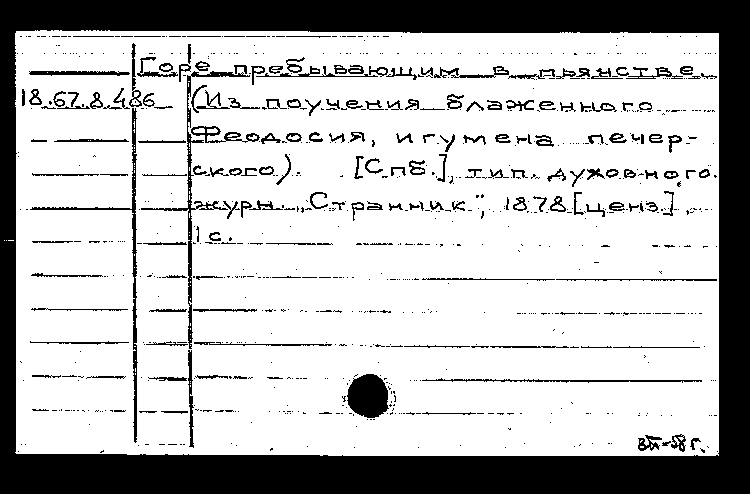 Горе пребывающим в пьянстве.
18.67.8.486 (Из поучения блаженного
Феодосия, игумена печер-
ского). [Спб.], тип. духовного
журн. „Странник", 1878 [ценз].
1 с.